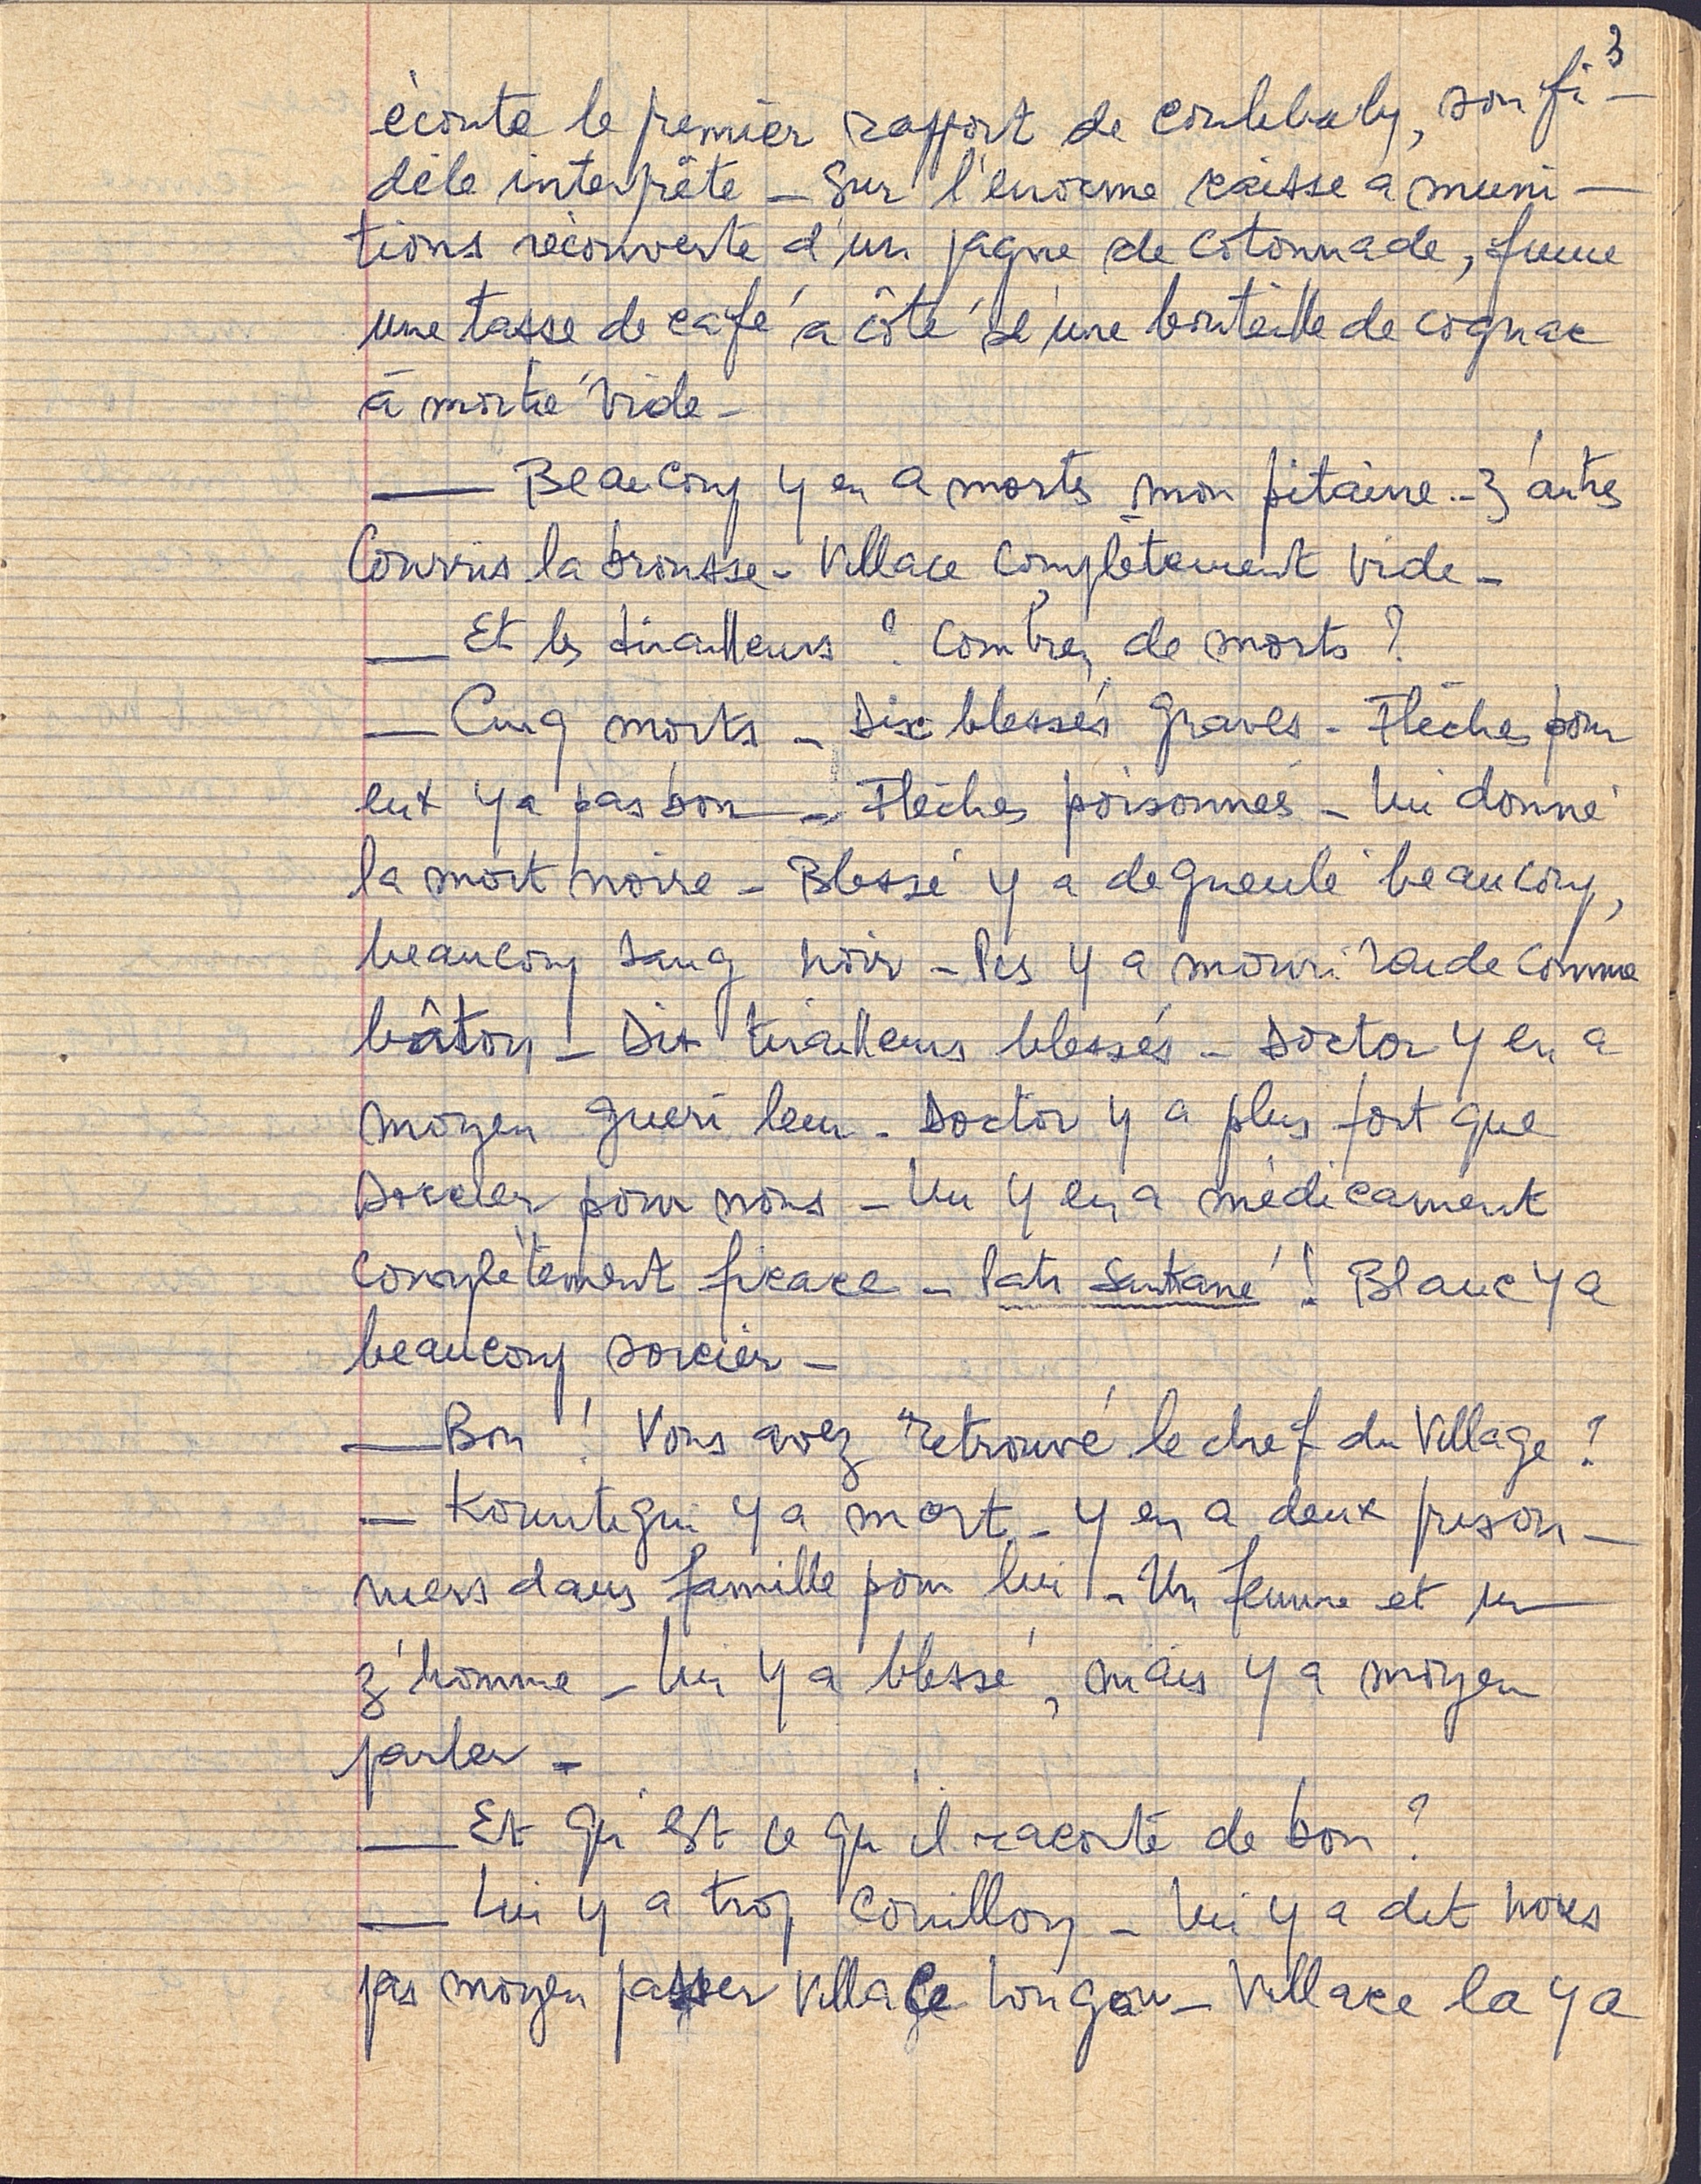 3
écoute le premier rapport de Coulibaly, son fi-
dèle interprète - Sur l'énorme caisse a muni-
tions récouverte d'un pagne de cotonnade, fume
une tasse de café à côté d'une bouteille de cognac
à moitié vide -
— Beaucoup y en a morts mon pitaine - z'autres
Courris la brousse - Village complètement vide -
— Et les tirailleurs ? Combien de morts ?
— Cinq morts - Dix blessés graves - Flèches pour
eux y a pas bon - Flèches poisonnés - Lui donné
la mort noire - Blessé y a dégueulé beaucoup,
beaucoup sang noir - Pis y a mouri raide comme
bâton - Dix tirailleurs blessés - Doctor y en a
moyen guéri leur - Doctor y a plus fort que
sorcier pour nous - Lui y en a médicament
complètement ficace - Pati Santané ! Blanc y a
beaucoup sorcier -
— Bon ! Vous avez retrouvé le chef du Village ?
— Kountigui y a mort - y en a deux prison-
niers dans famille pour lui - Un femme et un
z'homme - Lui y a blessé, mais y a moyen
parler -
— Et qu'est ce qu'il raconte de bon ?
— Lui y a trop couillon - Lui y a dit nous
pas moyen passer Village Lougou - Village la y a